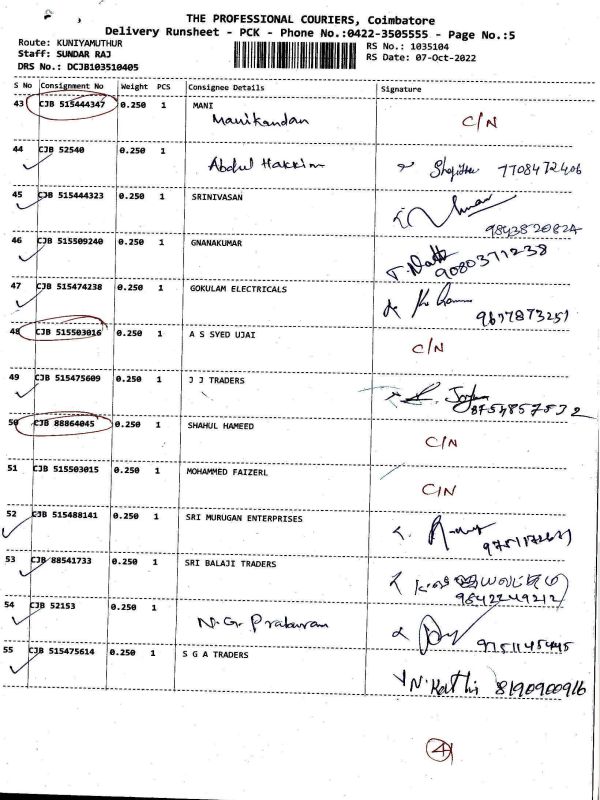 THE PROFESSIONAL COURIERS, Coimbatore
Delivery Runsheet - PCK - Phone No.:0422-3505555 - Page No.:5
Route: KUNIYAMUTHUR
RS No.: 1035104
Staff: SUNDAR RAJ
RS Date: 07-Oct-2022
DRS No.: DCJB103510405
S No Consignment No Weight PCS Consignee Details Signature
43 CJB 515444347 0.250 1 MANI
Manikandan C/N
44 CJB 52540 0.250 1
Abdul Hakkim 7708472406
45 CJB 515444323 0.250 1 SRINIVASAN
9843820824
46 CJB 515509240 0.250 1 GNANAKUMAR
9080371238
47 CJB 515474238 0.250 1 GOKULAM ELECTRICALS
9677873251
48 CJB 515503016 0.250 1 A S SYED UJAI
C/N
49 CJB 515475609 0.250 1 J J TRADERS
8754857532
50 CJB 88864045 0.250 1 SHAHUL HAMEED
C/N
51 CJB 515503015 0.250 1 MOHAMMED FAIZERL
C/N
52 CJB 515488141 0.250 1 SRI MURUGAN ENTERPRISES
53 CJB 88541733 0.250 1 SRI BALAJI TRADERS
9842249212
54 CJB 52153 0.250 1
N.G. Prabuvam 9751145445
55 CJB 515475614 0.250 1 S G A TRADERS
N. Kathi 8190900916
4